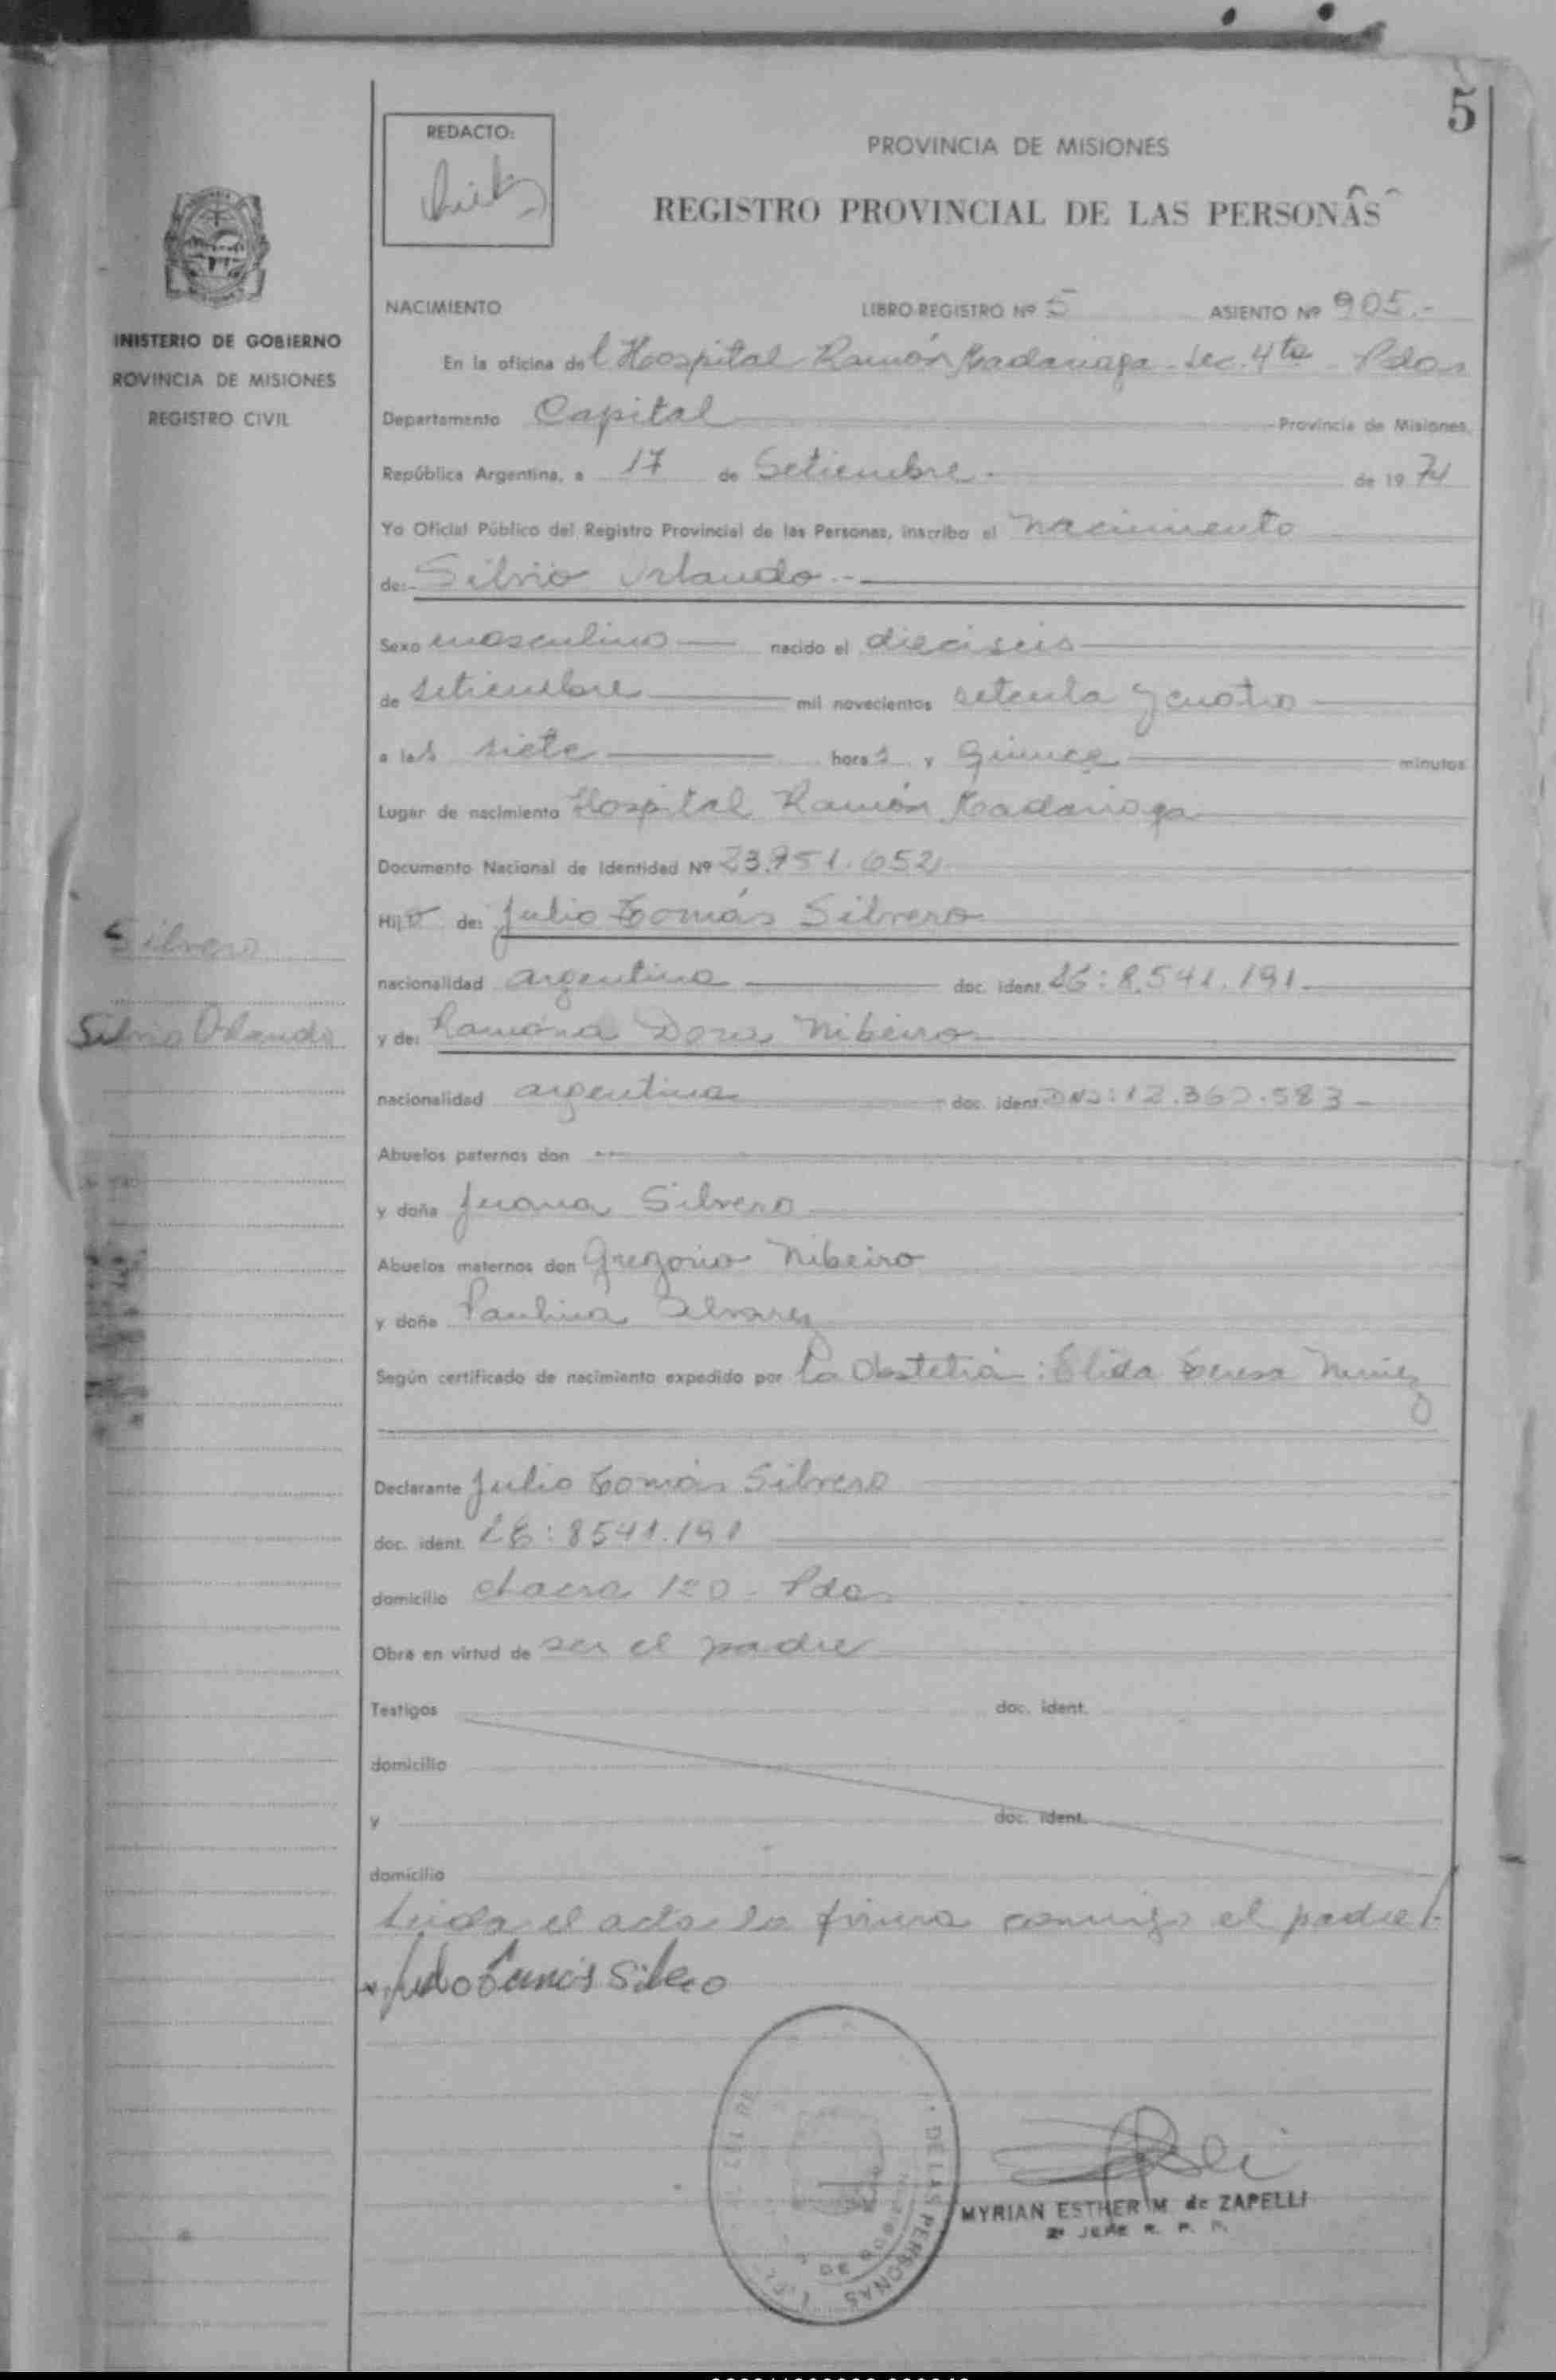 5
REDACTO:
PROVINCIA DE MISIONES
REGISTRO PROVINCIAL DE LAS PERSONAS
INISTERIO DE GOBIERNO
ROVINCIA DE MISIONES
REGISTRO CIVIL
NACIMIENTO LIBRO REGISTRO Nº 5 ASIENTO Nº 905.-
En la oficina del Hospital Ramón Madariaga - Sec. 4ta - Pdas
Departamento Capital Provincia de Misiones,
República Argentina, a 17 de Setiembre.- de 1974
Yo Oficial Público del Registro Provincial de las Personas, inscribo el nacimiento
de: Silvio Orlando.-
Sexo masculino nacido el dieciseis
de setiembre mil novecientos setenta y cuatro
a las siete horas y Quince minutos
Lugar de nacimiento Hospital Ramón Madariaga
Documento Nacional de Identidad Nº 23.951.652
Hijo de: Julio Tomás Silvero
Silvero
nacionalidad argentina doc. ident. LE: 8.541.191
Silvio Orlando
y de: Ramona Dora Ribeiro
nacionalidad argentina doc. ident. DNI: 12.360.583
Abuelos paternos don --
y doña Juana Silvero
Abuelos maternos don Gregorio Ribeiro
y doña Paulina Alvarez
Según certificado de nacimiento expedido por La Obstetra: Elida Teresa Nuñez
Declarante Julio Tomás Silvero
doc. ident. LE: 8541.191
domicilio chacra 120 - Pdas
Obra en virtud de ser el padre
Testigos doc. ident.
domicilio
y doc. ident.
domicilio
Leida el acta la firma conmigo el padre
Julio Tomás Silvero
DE LAS PERSONAS
MYRIAN ESTHER M. de ZAPELLI
2º JEFE R. P. P.